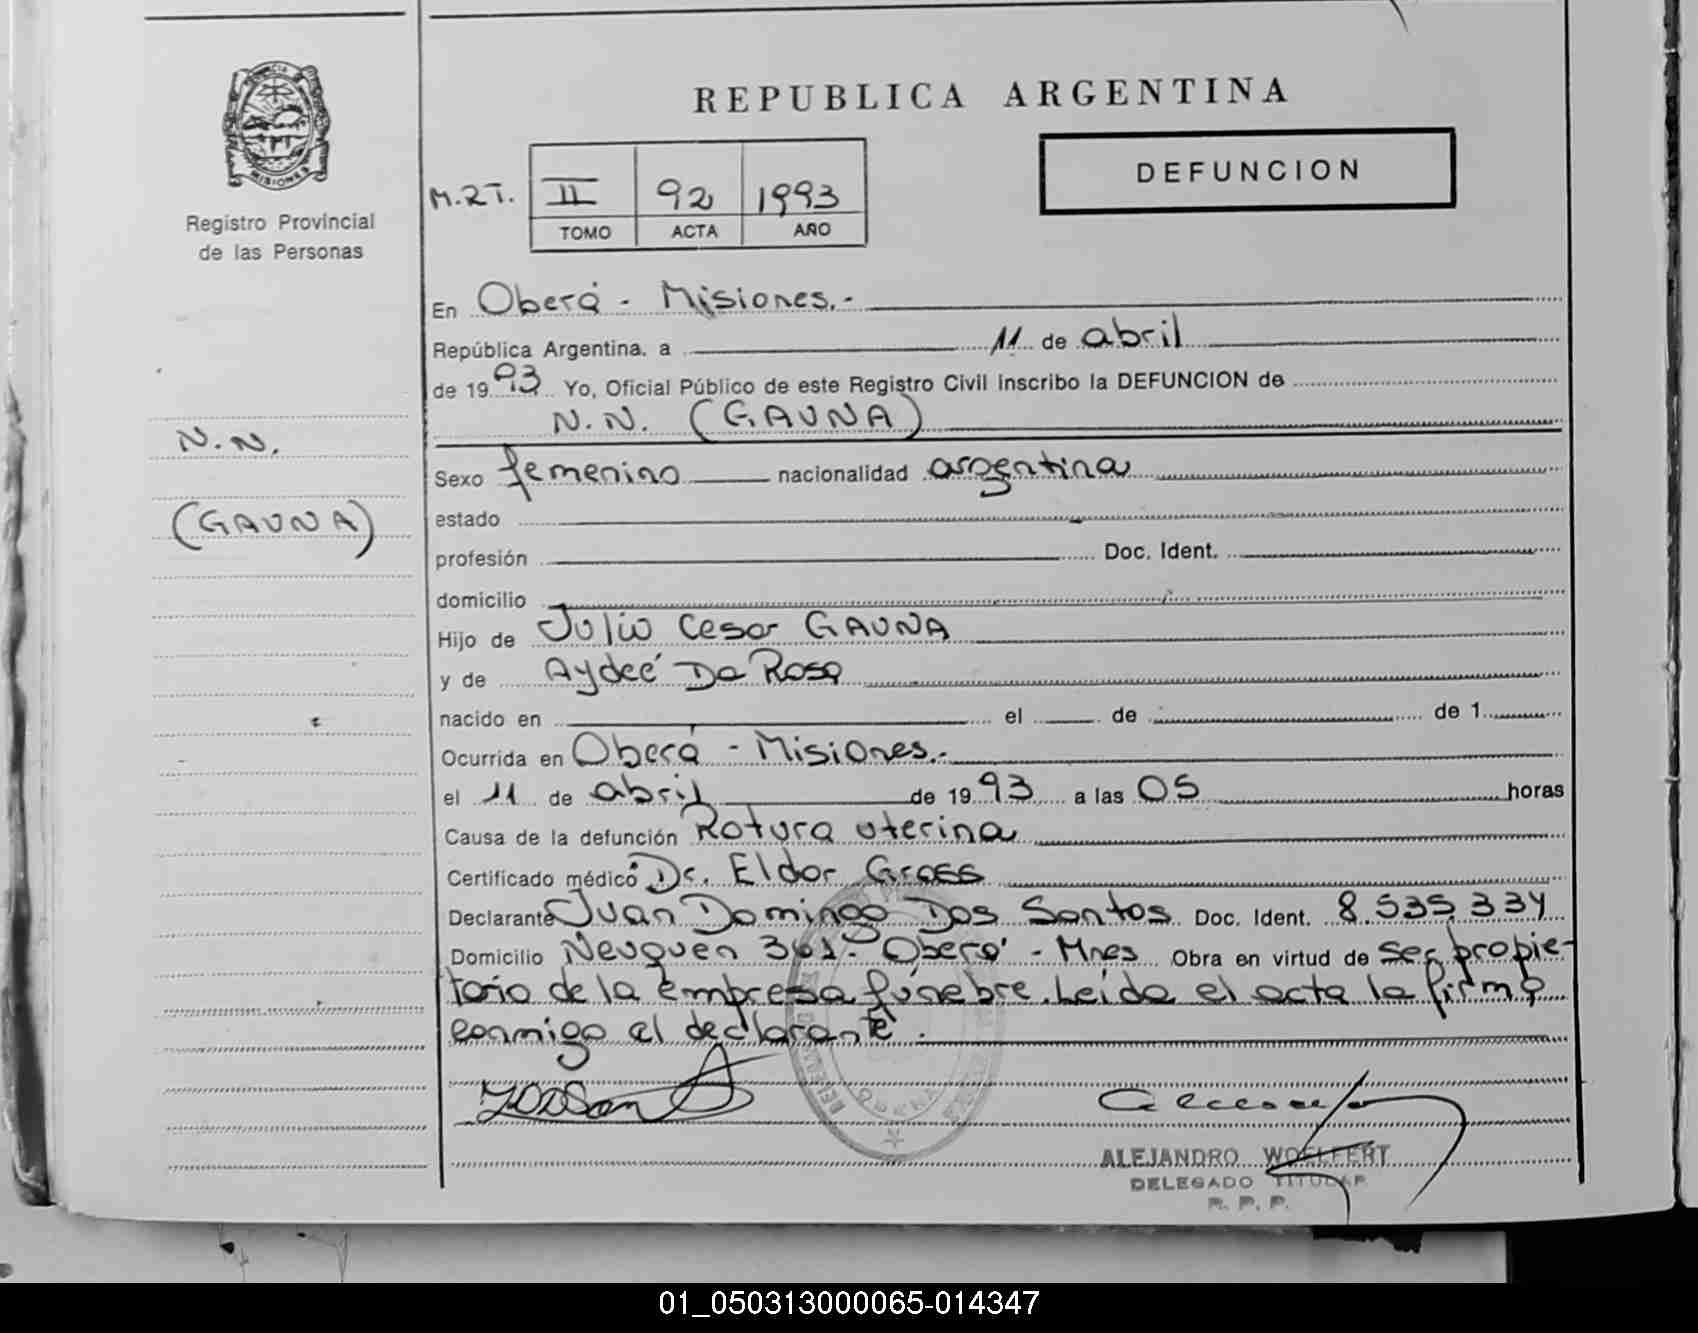 PROVINCIA DE
MISIONES
Registro Provincial
de las Personas
REPUBLICA ARGENTINA
DEFUNCION
M.RT. II 92 1993
TOMO ACTA AÑO
En Oberá - Misiones.-
República Argentina, a 11 de abril
de 1993 Yo, Oficial Público de este Registro Civil inscribo la DEFUNCION de
N.N. (GAUNA)
N.N.
(GAUNA)
Sexo femenino nacionalidad argentina
estado
profesión Doc. Ident.
domicilio
Hijo de Julio Cesar GAUNA
y de Aydeé Da Rosa
nacido en el de de 1
Ocurrida en Oberá - Misiones.-
el 11 de abril de 1993 a las 05 horas
Causa de la defunción Rotura uterina
Certificado médico Dr. Eldor Gross
Declarante Juan Domingo Dos Santos Doc. Ident. 8.535.334
Domicilio Neuquen 361.- Oberá - Mnes Obra en virtud de ser propie-
tario de la empresa fúnebre. Leída el acta la firma
conmigo el declarante.
OBERA
ALEJANDRO WOELFERT
DELEGADO TITULAR
R. P. P.
01_050313000065-014347